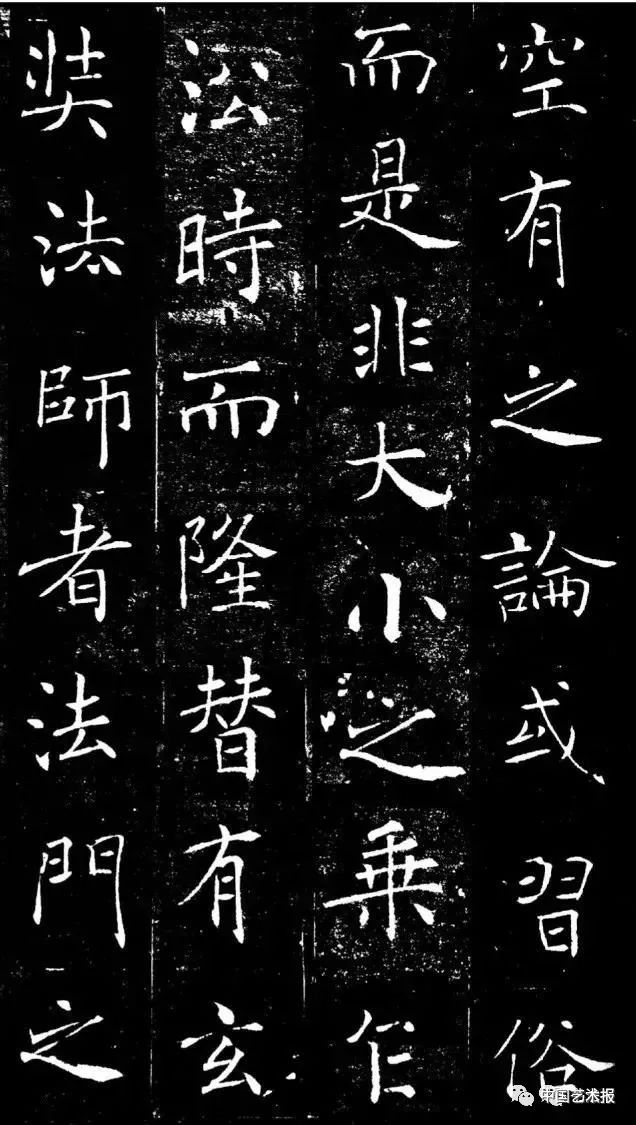 空有之論或習俗
而是非大小之乗乍
㳂時而隆替有玄
奘法師者法門之
中国艺术报